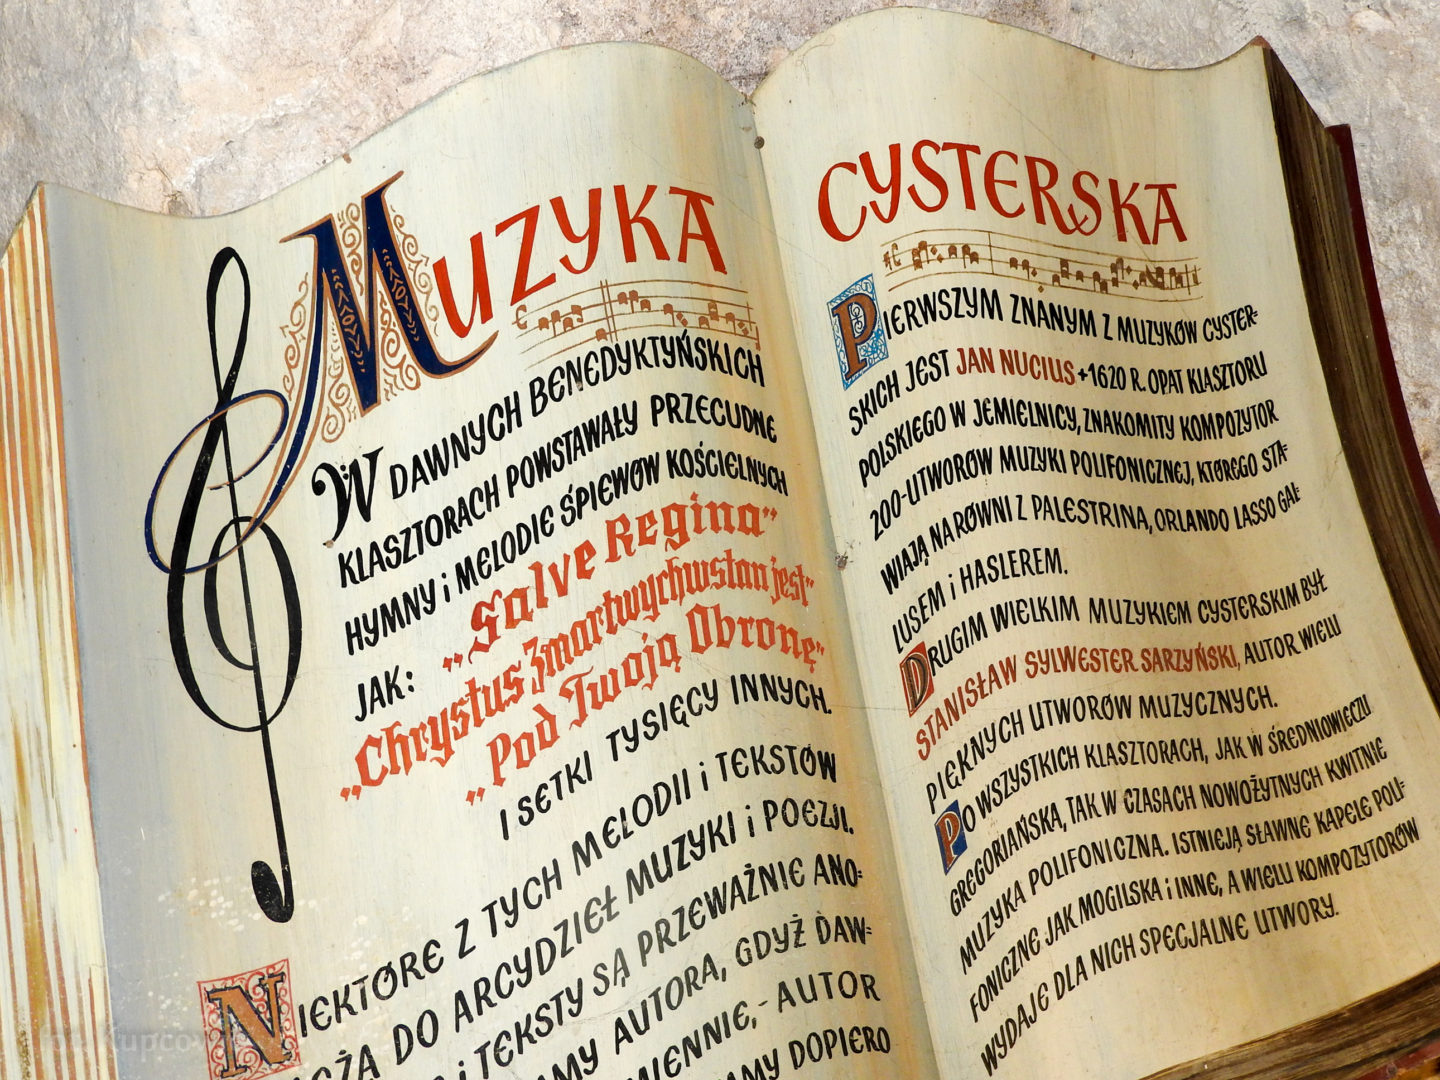 MUZYKA
W DAWNYCH BENEDYKTYŃSKICH
KLASZTORACH POWSTAWAŁY PRZECUDNE
HYMNY i MELODIE ŚPIEWÓW KOŚCIELNYCH
JAK: „Salve Regina”
„Chrystus Zmartwychwstan jest”
„Pod Twoją Obronę”
I SETKI TYSIĘCY INNYCH.
NIEKTÓRE Z TYCH MELODII i TEKSTÓW
DO ARCYDZIEŁ MUZYKI i POEZJI.
i TEKSTY SĄ PRZEWAŻNIE ANO-
AUTORA, GDYŻ DAW-
AUTOR
DOPIERO
CYSTERSKA
PIERWSZYM ZNANYM Z MUZYKÓW CYSTER-
SKICH JEST JAN NUCIUS +1620 R. OPAT KLASZTORU
POLSKIEGO W JEMIELNICY, ZNAKOMITY KOMPOZYTOR
200-UTWORÓW MUZYKI POLIFONICZNEJ, KTÓREGO STA-
WIAJĄ NARÓWNI Z PALESTRINA, ORLANDO LASSO GAL-
LUSEM i HASLEREM.
DRUGIM WIELKIM MUZYKIEM CYSTERSKIM BYŁ
STANISŁAW SYLWESTER SARZYŃSKI, AUTOR WIELU
PIĘKNYCH UTWORÓW MUZYCZNYCH.
POWSZYSTKICH KLASZTORACH, JAK W ŚREDNIOWIECZU
GREGORIAŃSKA, TAK W CZASACH NOWOŻYTNYCH KWITNIE
MUZYKA POLIFONICZNA. ISTNIEJĄ SŁAWNE KAPELE POLI-
FONICZNE JAK MOGILSKA i INNE, A WIELU KOMPOZYTORÓW
WYDAJE DLA NICH SPECJALNE UTWORY.